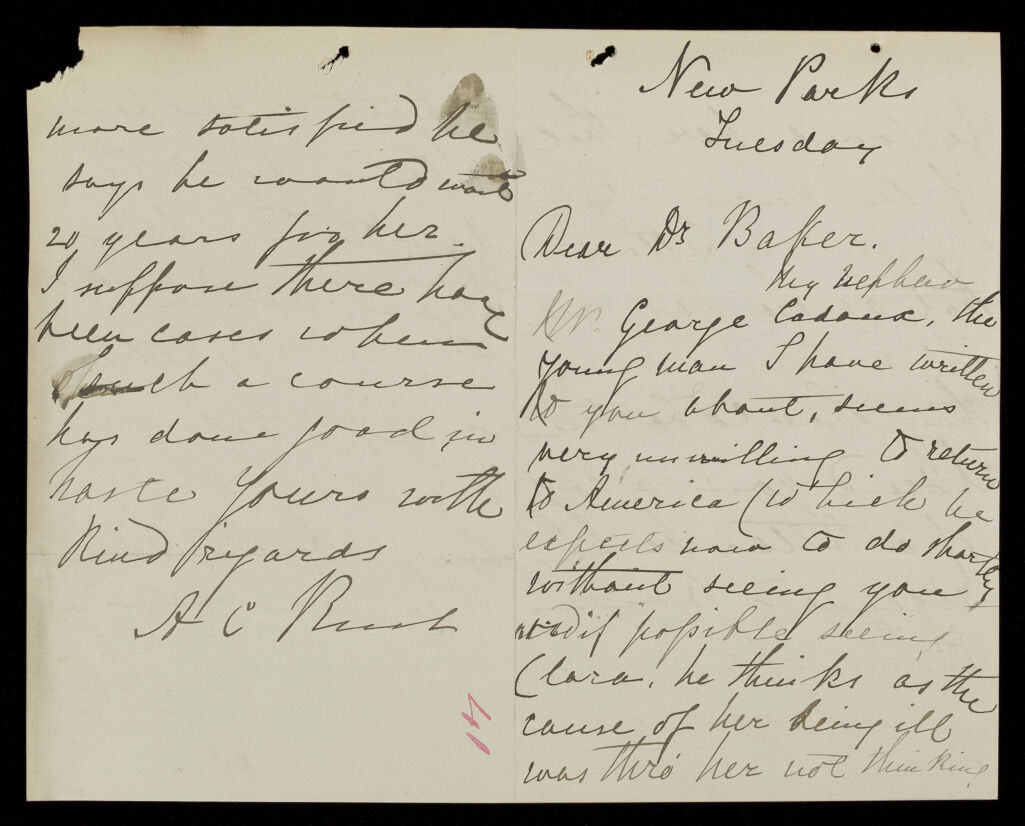 New Parks
Tuesday
Dear Dr Baker.
My Nephew
Mr. George Cadoux, the
young man I have written
to you about, seems
very unwilling to return
to America (which he
expects now to do shortly
without seeing you
and if possible seeing
Clara. he thinks as the
cause of her being ill
was thro' her not thinking
more satisfied he
says he would wait
20 years for her.
I suppose there have
been cases where
such a course
has done good, in
haste yours with
kind regards
A C
41